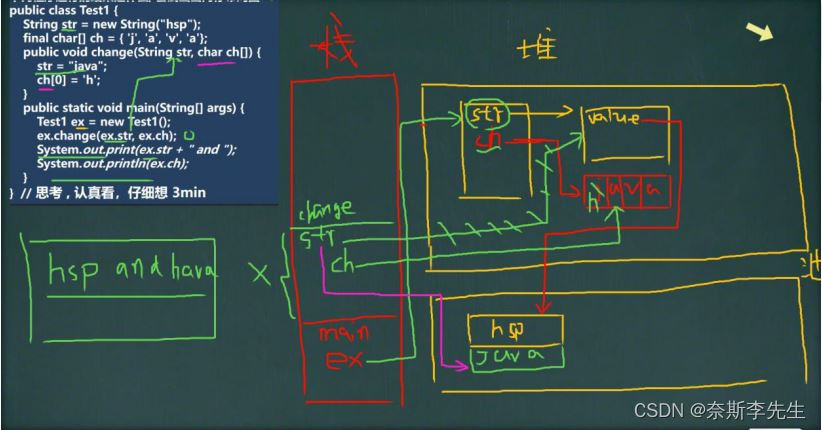 public class Test1 {
String str = new String("hsp");
final char[] ch = { 'j', 'a', 'v', 'a'};
public void change(String str, char ch[]) {
str = "java";
ch[0] = 'h';
}
public static void main(String[] args) {
Test1 ex = new Test1();
ex.change(ex.str, ex.ch);
System.out.print(ex.str + " and ");
System.out.println(ex.ch);
}
} // 思考，认真看，仔细想 3min
栈
堆
str
value
ch
h a v a
change
str
ch
hsp and hava
X
main
ex
hsp
java
CSDN @奈斯李先生